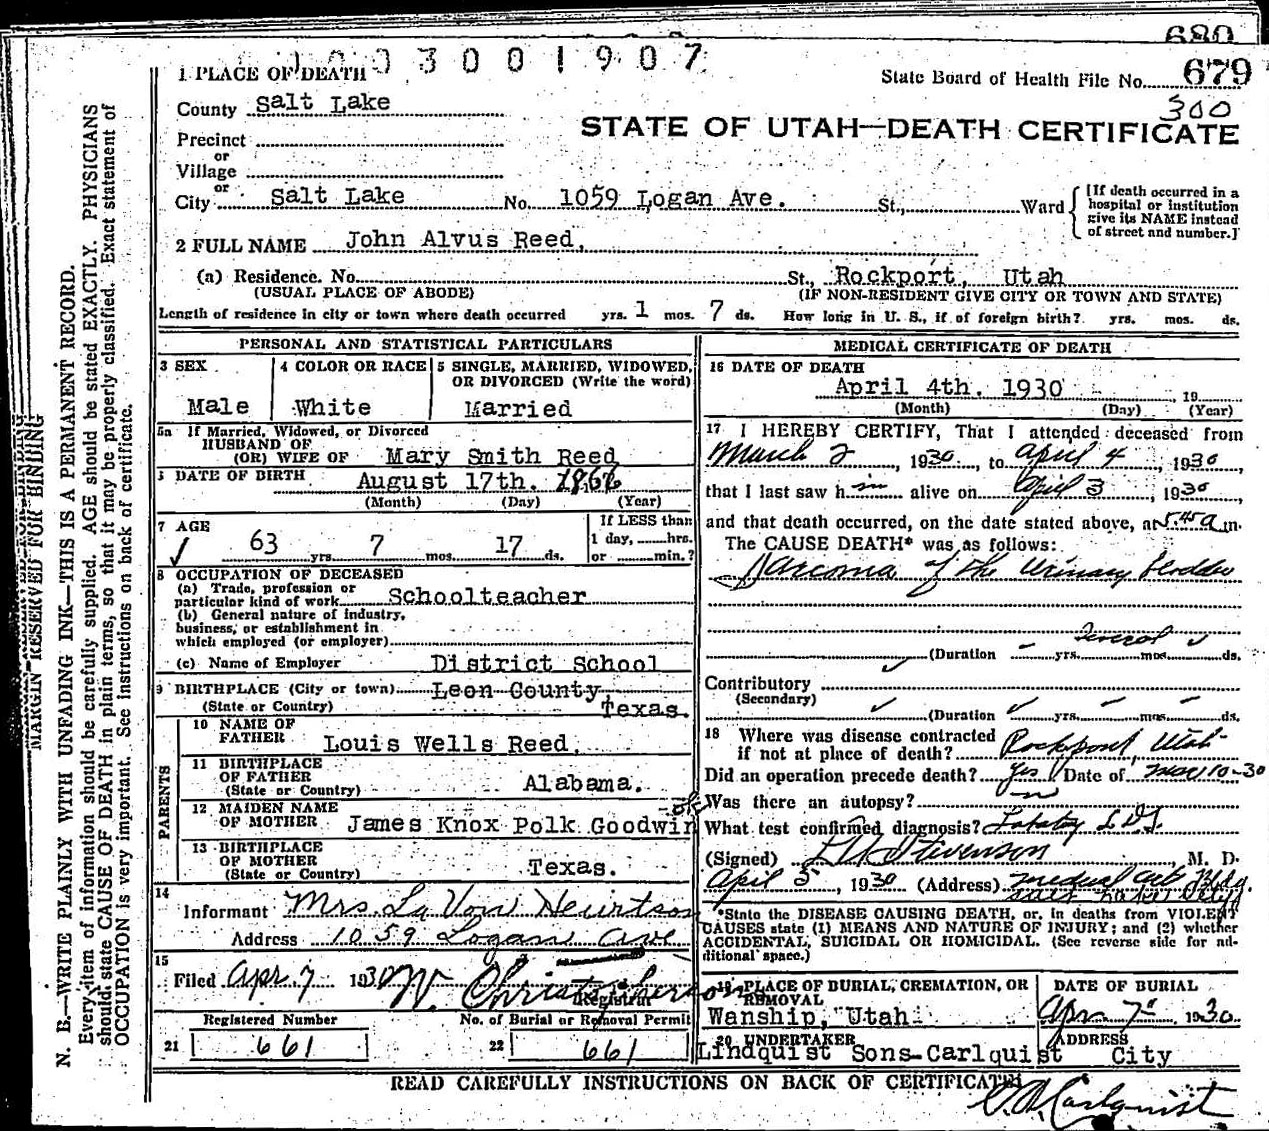 680
1003001907
1 PLACE OF DEATH
State Board of Health File No. 679
County Salt Lake
300
STATE OF UTAH—DEATH CERTIFICATE
Precinct
or
Village
or
City Salt Lake No. 1059 Logan Ave. St., Ward
[If death occurred in a
hospital or institution
give its NAME instead
of street and number.]
2 FULL NAME John Alvus Reed.
(a) Residence. No. St., Rockport, Utah
(USUAL PLACE OF ABODE) (IF NON-RESIDENT GIVE CITY OR TOWN AND STATE)
Length of residence in city or town where death occurred yrs. 1 mos. 7 ds. How long in U. S., if of foreign birth? yrs. mos. ds.
MARGIN RESERVED FOR BINDING
N. B.—WRITE PLAINLY WITH UNFADING INK—THIS IS A PERMANENT RECORD.
Every item of information should be carefully supplied. AGE should be stated EXACTLY. PHYSICIANS
should state CAUSE OF DEATH in plain terms, so that it may be properly classified. Exact statement of
OCCUPATION is very important. See instructions on back of certificate.
PERSONAL AND STATISTICAL PARTICULARS
3 SEX
Male
4 COLOR OR RACE
White
5 SINGLE, MARRIED, WIDOWED,
OR DIVORCED (Write the word)
Married
5a If Married, Widowed, or Divorced
HUSBAND OF
(OR) WIFE OF Mary Smith Reed
DATE OF BIRTH August 17th. 1866
(Month) (Day) (Year)
7 AGE
63 yrs. 7 mos. 17 ds.
If LESS than
1 day, hrs.
or min.?
8 OCCUPATION OF DECEASED
(a) Trade, profession or
particular kind of work Schoolteacher
(b) General nature of industry,
business, or establishment in
which employed (or employer)
(c) Name of Employer District School
9 BIRTHPLACE (City or town) Leon County,
(State or Country) Texas.
PARENTS
10 NAME OF
FATHER Louis Wells Reed.
11 BIRTHPLACE
OF FATHER
(State or Country) Alabama.
12 MAIDEN NAME
OF MOTHER James Knox Polk Goodwin
-ok
13 BIRTHPLACE
OF MOTHER
(State or Country) Texas.
14
Informant Mrs. La Von Hewtson
Address 1059 Logan Ave
15
Filed Apr. 7 1930 W. Christopherson
Registrar
Registered Number No. of Burial or Removal Permit
21 661 22 661
MEDICAL CERTIFICATE OF DEATH
16 DATE OF DEATH
April 4th. 1930 19
(Month) (Day) (Year)
17 I HEREBY CERTIFY, That I attended deceased from
March 2, 1930, to April 4, 1930,
that I last saw h im alive on April 3, 1930,
and that death occurred, on the date stated above, at 5:45 a m.
The CAUSE DEATH* was as follows:
Sarcoma of the Urinary bladder
several
(Duration yrs. mos. ds.
Contributory
(Secondary)
(Duration yrs. mos. ds.
18 Where was disease contracted
if not at place of death? Rockport, Utah
Did an operation precede death? Yes Date of Mar 10-30
Was there an autopsy? no
What test confirmed diagnosis? L.D.S.
(Signed) L N Stevenson, M. D.
April 5, 1930 (Address) Medical Arts Bldg.
Salt Lake City
*State the DISEASE CAUSING DEATH, or, in deaths from VIOLENT
CAUSES state (1) MEANS AND NATURE OF INJURY; and (2) whether
ACCIDENTAL, SUICIDAL OR HOMICIDAL. (See reverse side for ad-
ditional space.)
19 PLACE OF BURIAL, CREMATION, OR
REMOVAL
Wanship, Utah
DATE OF BURIAL
Apr 7" 1930
20 UNDERTAKER
Lindquist Sons-Carlquist
ADDRESS
City
READ CAREFULLY INSTRUCTIONS ON BACK OF CERTIFICATE
C. A. Carlquist